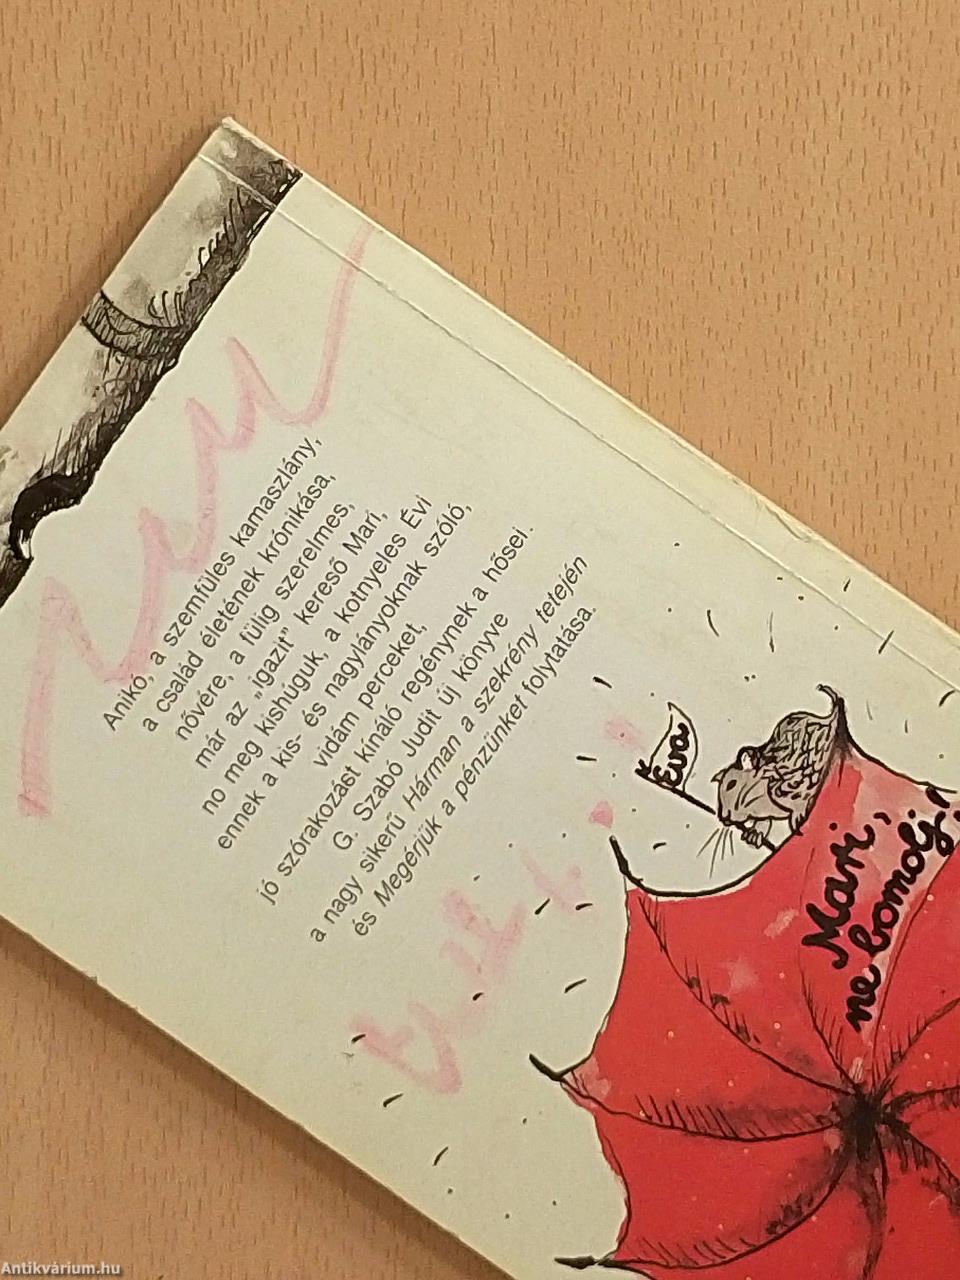 Anikó, a szemfüles kamaszlány,
a család életének krónikása,
nővére, a fülig szerelmes,
már az „igazit" kereső Mari,
no meg kishúguk, a kotnyeles Évi
ennek a kis- és nagylányoknak szóló,
vidám perceket,
jó szórakozást kínáló regénynek a hősei.
G. Szabó Judit új könyve
a nagy sikerű Hárman a szekrény tetején
és Megérjük a pénzünket folytatása.
Éva
Mari,
ne bomolj!
Antikvárium.hu